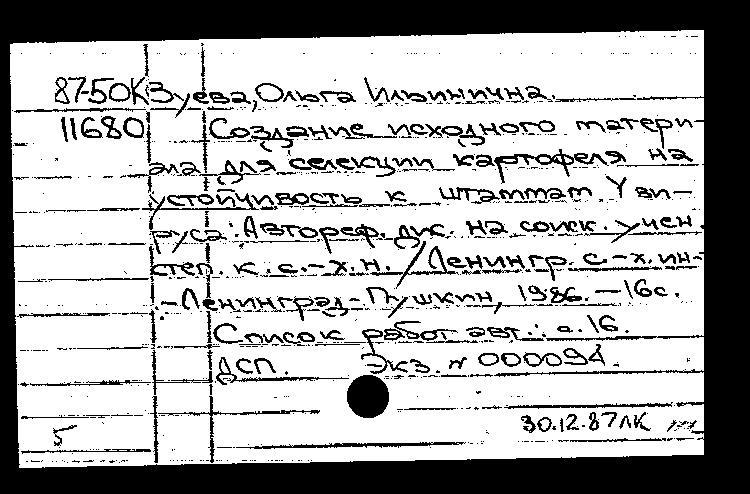 87-50К Зуева, Ольга Ильинична.
11680 Создание исходного матери-
ала для селекции картофеля на
устойчивость к штаммам Y ви-
руса: Автореф. дис. на соиск. учен.
степ. к. с.-х. н. / Ленингр. с.-х. ин-
. - Ленинград - Пушкин, 1986. - 16с.
Список работ авт.: с. 16.
ДСП. Экз. N 000094.
30.12.87 ЛК
5